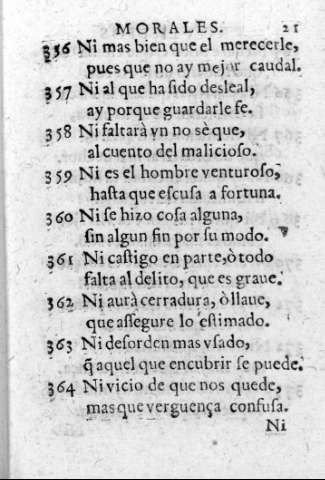 MORALES. 21
356 Ni mas bien que el merecerle,
pues que no ay mejor caudal.
357 Ni al que ha sido desleal,
ay porque guardarle fe.
358 Ni faltarà vn no sè que,
al cuento del malicioso.
359 Ni es el hombre venturoso,
hasta que escusa a fortuna.
360 Ni se hizo cosa alguna,
sin algun fin por su modo.
361 Ni castigo en parte, ò todo
falta al delito, que es graue.
362 Ni aurà cerradura, ò llaue,
que assegure lo estimado.
363 Ni desorden mas vsado,
q̃ aquel que encubrir se puede.
364 Ni vicio de que nos quede,
mas que verguença confusa.
Ni